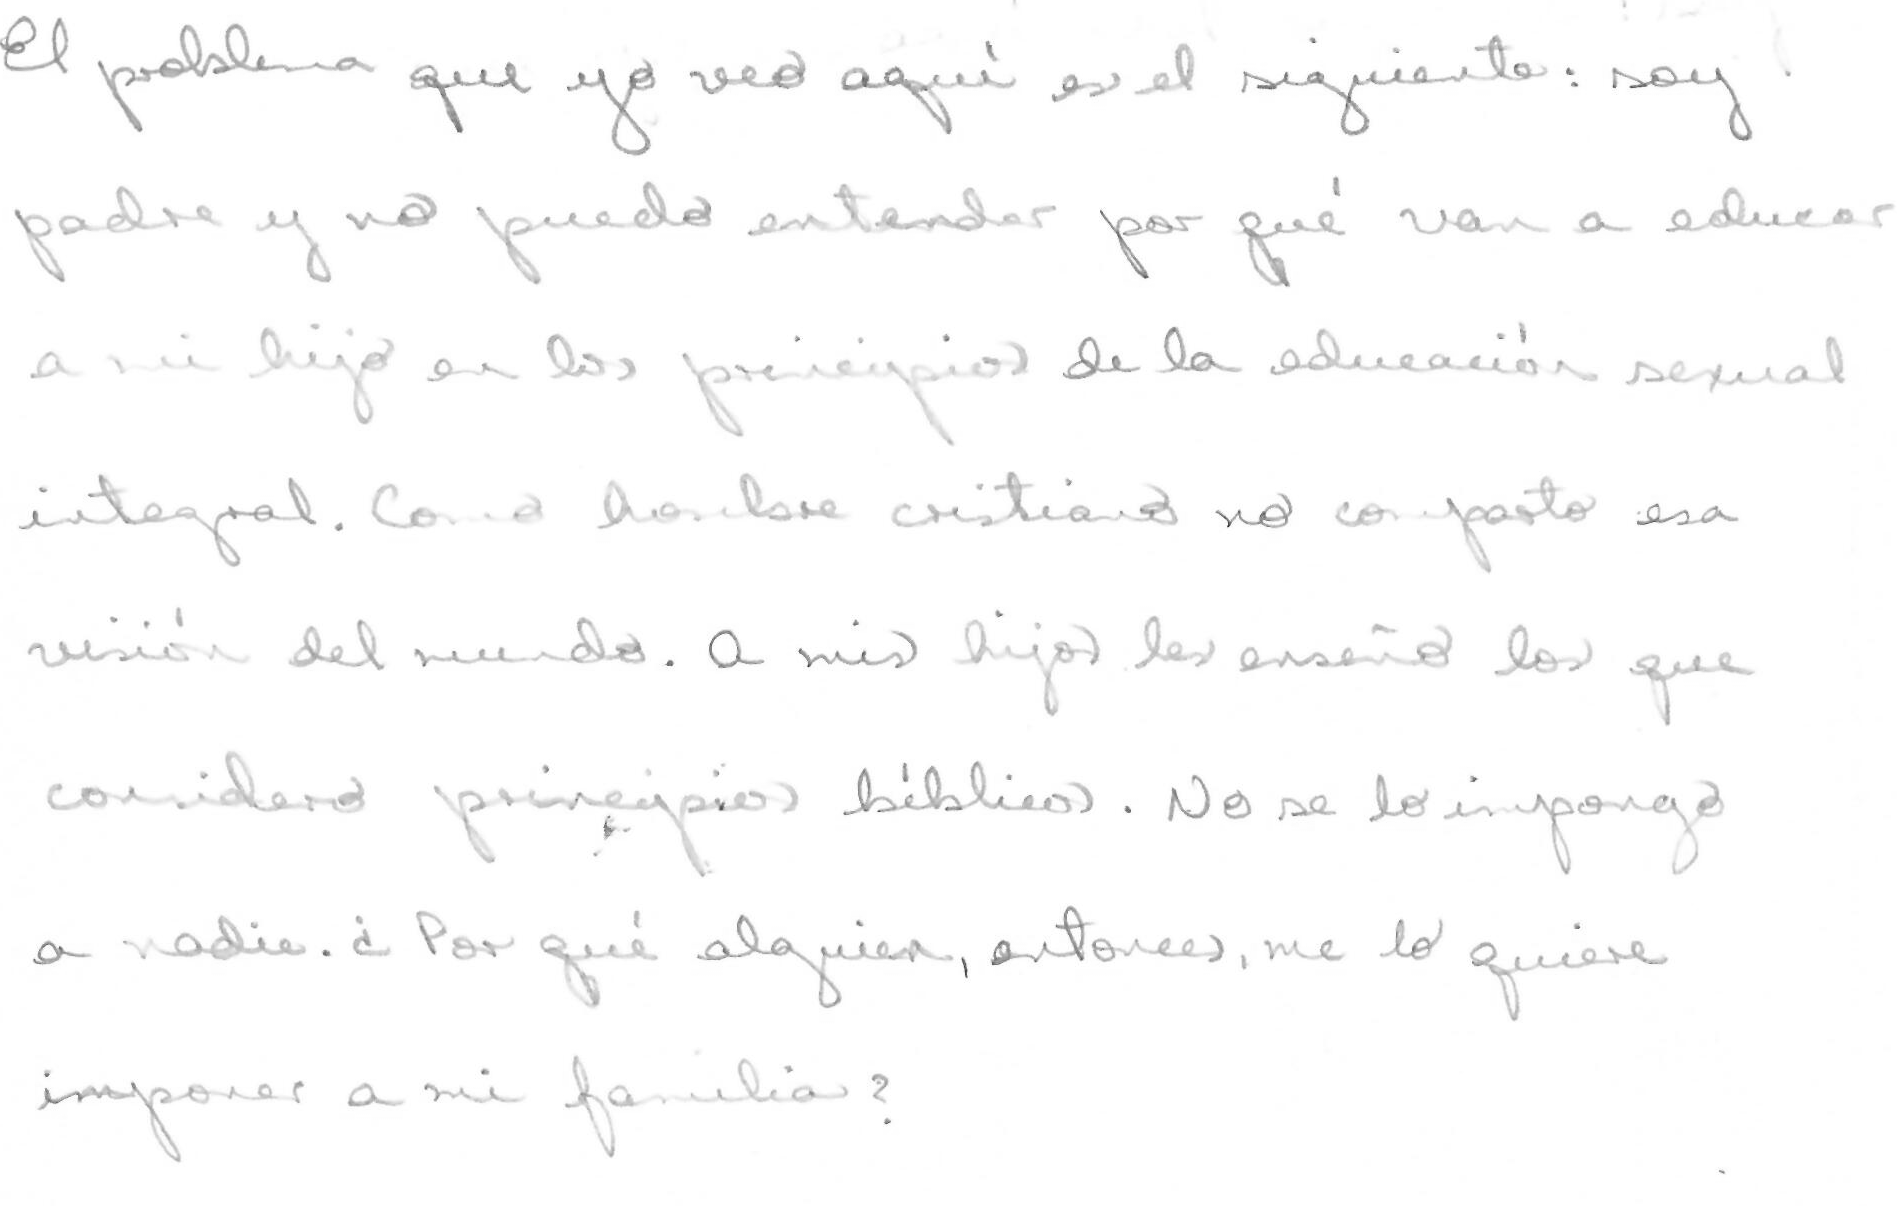 El problema que yo veo aquí es el siguiente: soy
padre y no puedo entender por qué van a educar
a mi hijo en los principios de la educación sexual
integral. Como hombre cristiano no comparto esa
visión del mundo. A mis hijos les enseño los que
considero principios bíblicos. No se lo impongo
a nadie. ¿Por qué alguien, entonces, me lo quiere
imponer a mi familia?